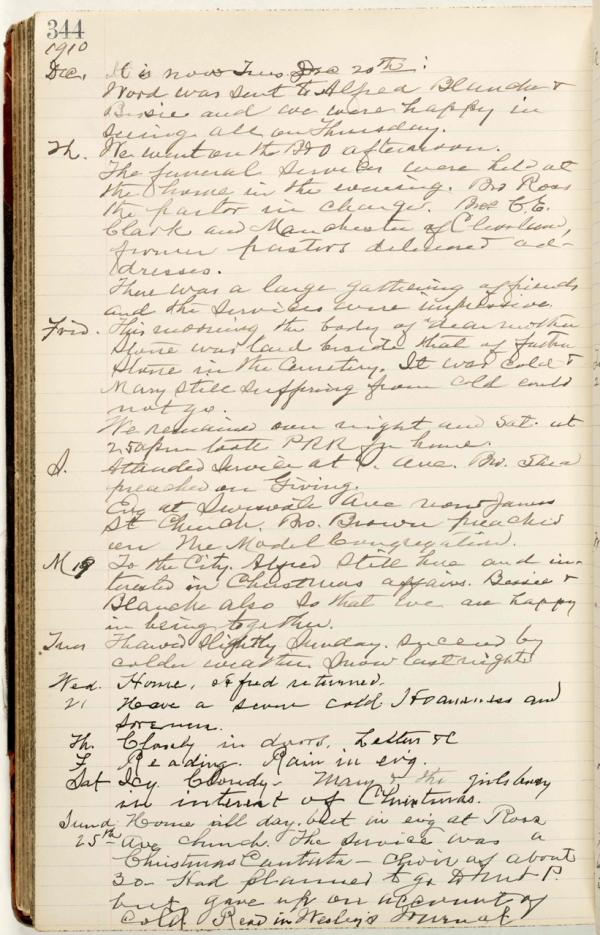 344
1910
Dec. It is now Tues Dec 20th:
Word was sent to Alfred Blanche &
Bessie and we were happy in
seeing all on Thursday.
Th. We went on the B&O afternoon.
The funeral services were held at
the home in the evening. Bro Ross
the pastor in charge. Bros C.E.
Clark and Manchester of Cleveland,
former pastors delivered ad-
dresses.
There was a large gathering of friends
and the services were impressive.
Frid. This morning the body of dear mother
Stone was laid beside that of father
Stone in the Cemetery. It was cold &
Mary still suffering from cold could
not go.
We remained over night and Sat. at
2.50 pm took PRR for home.
S. Attended service at Ave. Bro. Shea
preached on Giving.
Evg at Swissvale Ave now James
St Church. Bro. Brown preached
on The Model Congregation.
M 19 To the City. Alfred still here and in-
terested in Christmas affairs. Bessie &
Blanche also so that we are happy
in being together.
Tues Thawed slightly Sunday. succeed by
colder weather. Snow last night.
Wed. Home. Alfred returned.
21 Have a severe cold Hoarseness and
Th. Closely in doors. Letters &c
F. Reading. Rain in evg.
Sat Icy. Cloudy. Mary & the girls busy
in interest of Christmas.
Sund Home all day. but in evg at Ross
25th Ave church. The service was a
Christmas Cantata - choir of about
30 - Had planned to go to P.
but gave up on account of
cold. Read in Wesley's Journal